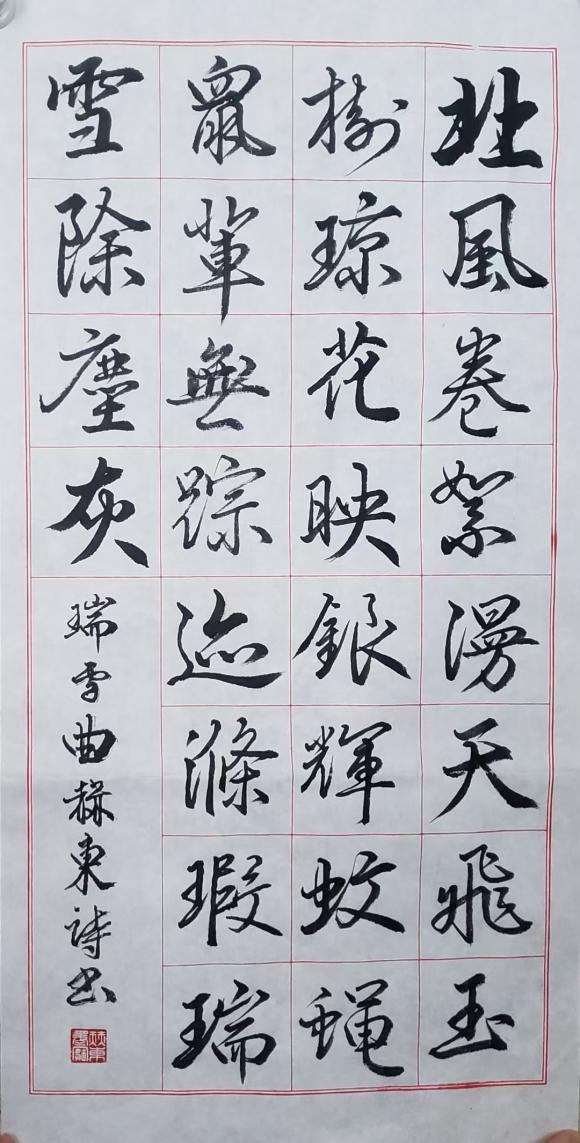 北風卷絮漫天飛玉
樹琼花映銀輝蚊蝇
鼠輩無踪迹滌瑕瑞
雪除塵灰
瑞雪曲赫東詩书